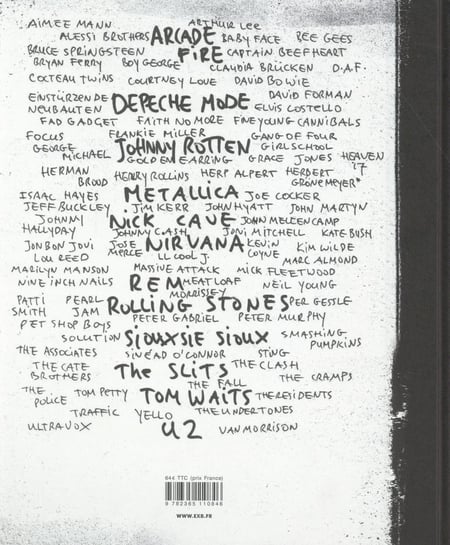 AIMEE MANN ARTHUR LEE
ALESSI BROTHERS ARCADE BABY FACE BEE GEES
BRUCE SPRINGSTEEN FIRE CAPTAIN BEEFHEART
BRYAN FERRY BOY GEORGE CLAUDIA BRÜCKEN D.A.F.
COCTEAU TWINS COURTNEY LOVE DAVID BOWIE
EINSTÜRZENDE DEPECHE MODE DAVID FORMAN
NEUBAUTEN ELVIS COSTELLO
FAD GADGET FAITH NO MORE FINE YOUNG CANNIBALS
FOCUS FRANKIE MILLER GANG OF FOUR
GEORGE JOHNNY ROTTEN GIRLSCHOOL
MICHAEL GOLDEN EARRING GRACE JONES HEAVEN 17
HERMAN HENRY ROLLINS HERP ALPERT HERBERT
BROOD GRÖNEMEYER
ISAAC HAYES METALLICA JOE COCKER
JEFF BUCKLEY JIM KERR JOHN HYATT JOHN MARTYN
JOHNNY NICK CAVE JOHN MELLENCAMP
HALLYDAY JOHNNY CASH JONI MITCHELL KATE BUSH
JON BON JOVI JOSE NIRVANA KEVIN KIM WILDE
LOU REED MERCE LL COOL J. COYNE MARC ALMOND
MARILYN MANSON MASSIVE ATTACK MICK FLEETWOOD
NINE INCH NAILS REM MEATLOAF NEIL YOUNG
MORRISSEY
PATTI PEARL ROLLING STONES PER GESSLE
SMITH JAM PETER GABRIEL PETER MURPHY
PET SHOP BOYS
SOLUTION SIOUXSIE SIOUX SMASHING
PUMPKINS
THE ASSOCIATES SINÉAD O'CONNOR STING
THE CATE THE SLITS THE CLASH
BROTHERS THE FALL THE CRAMPS
THE TOM PETTY TOM WAITS THE RESIDENTS
POLICE
TRAFFIC YELLO THE UNDERTONES
ULTRAVOX U2 VAN MORRISON
64€ TTC (prix France)
9 782365 110846
WWW.EXB.FR